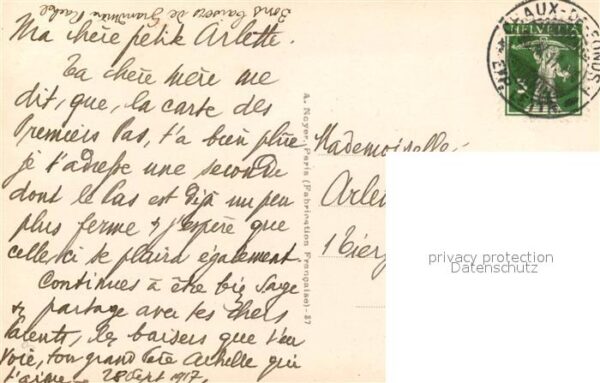 Bons baisers de Grand'mère Rachel
Ma chère petite Arlette.
Ta chère mère me
dit, que, la carte des
Premiers Pas, t'a bien plûe
je t'adresse une seconde
dont le Pas est déjà un peu
plus ferme & j'espère que
celle-ci te plaira également.
Continues à être bie sage
& partage avec tes chers
Parents, les baisers que t'en
voie, ton grand Père Achille qui
t'aime. 28 Sept 1917.
A. Noyer, Paris (Fabrication Française)-27
HELVETIA
CHAUX-DE-FONDS
Mademoiselle
Arle
privacy protection
Datenschutz